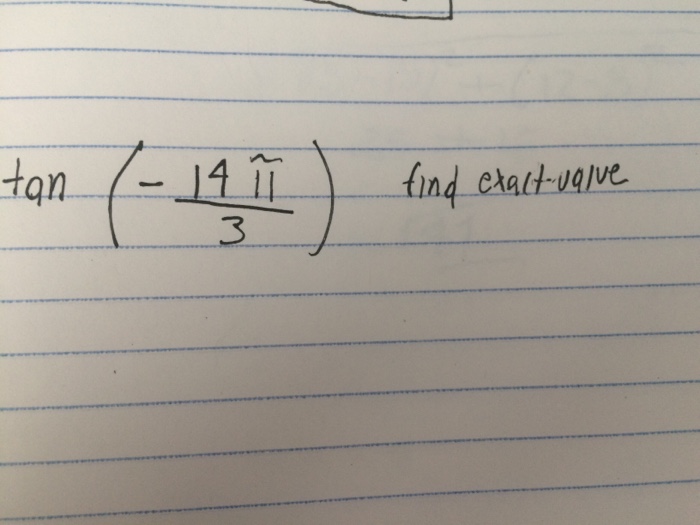 tan (- 14 π / 3) find exact value